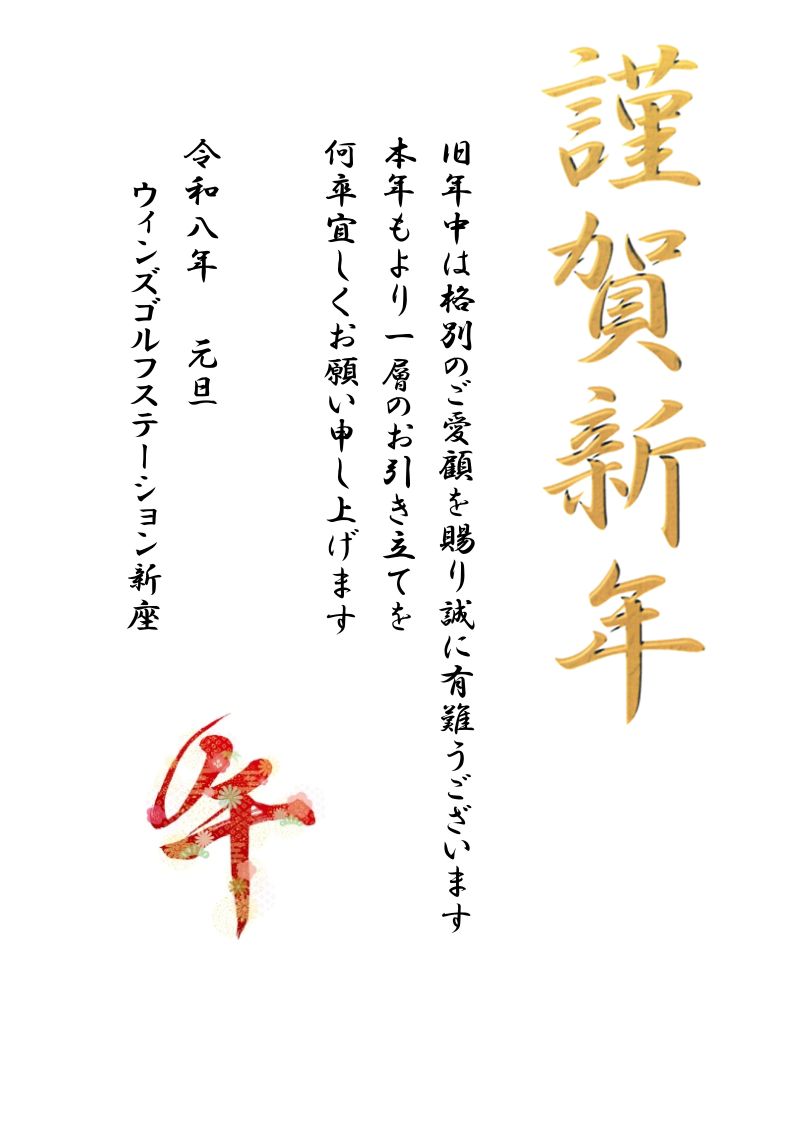 謹賀新年
旧年中は格別のご愛顧を賜り誠に有難うございます
本年もより一層のお引き立てを
何卒宜しくお願い申し上げます
令和八年　元旦
ウィンズゴルフステーション新座
午